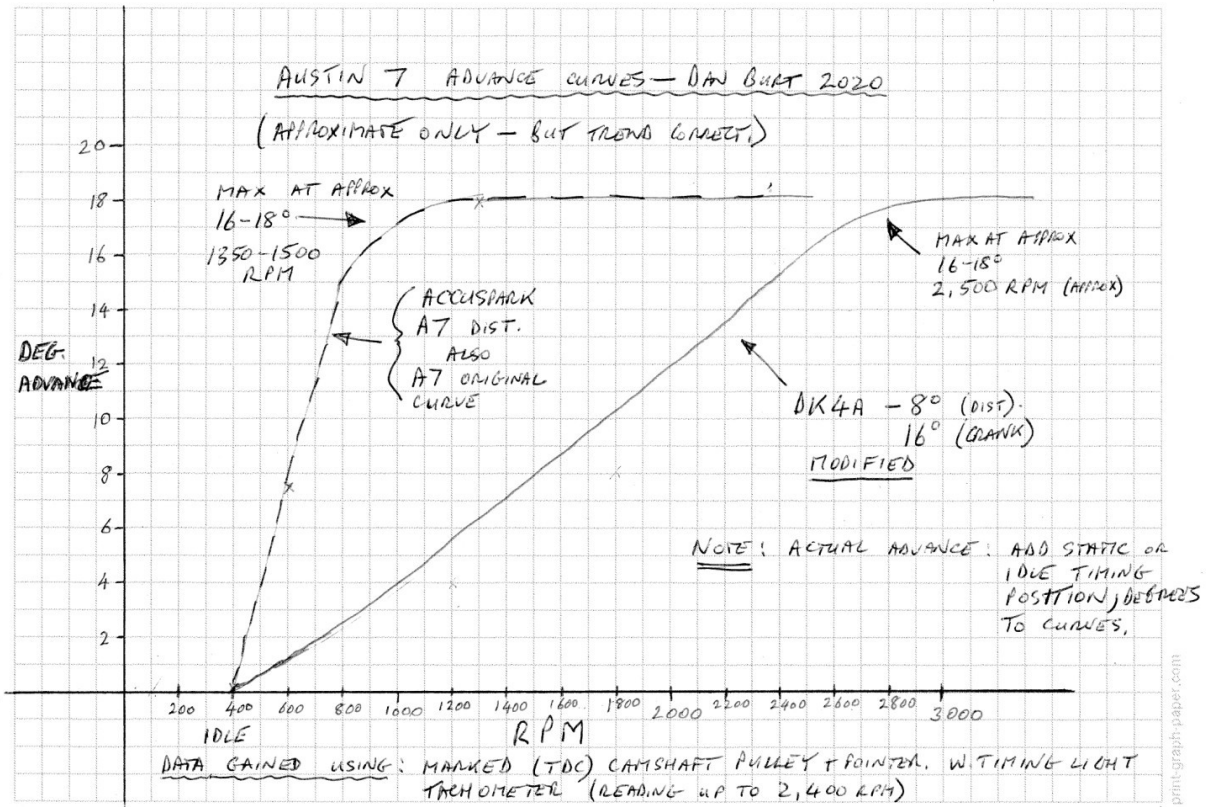 AUSTIN 7 ADVANCE CURVES — DAN BURT 2020
(APPROXIMATE ONLY — BUT TREND CORRECT.)
20
18
16
14
12
10
8
6
4
2
DEG.
ADVANCE
MAX AT APPROX
16-18°
1350-1500
RPM
ACCUSPARK
A7 DIST.
ALSO
A7 ORIGINAL
CURVE
MAX AT APPROX
16-18°
2,500 RPM (APPROX)
DK4A - 8° (DIST).
16° (CRANK)
MODIFIED
NOTE: ACTUAL ADVANCE: ADD STATIC OR
IDLE TIMING
POSITION, DEGREES
TO CURVES.
200 400 600 800 1000 1200 1400 1600 1800 2000 2200 2400 2600 2800 3000
IDLE
RPM
DATA GAINED USING: MARKED (TDC) CAMSHAFT PULLEY + POINTER. W. TIMING LIGHT
TACHOMETER (READING UP TO 2,400 RPM)
print-graph-paper.com